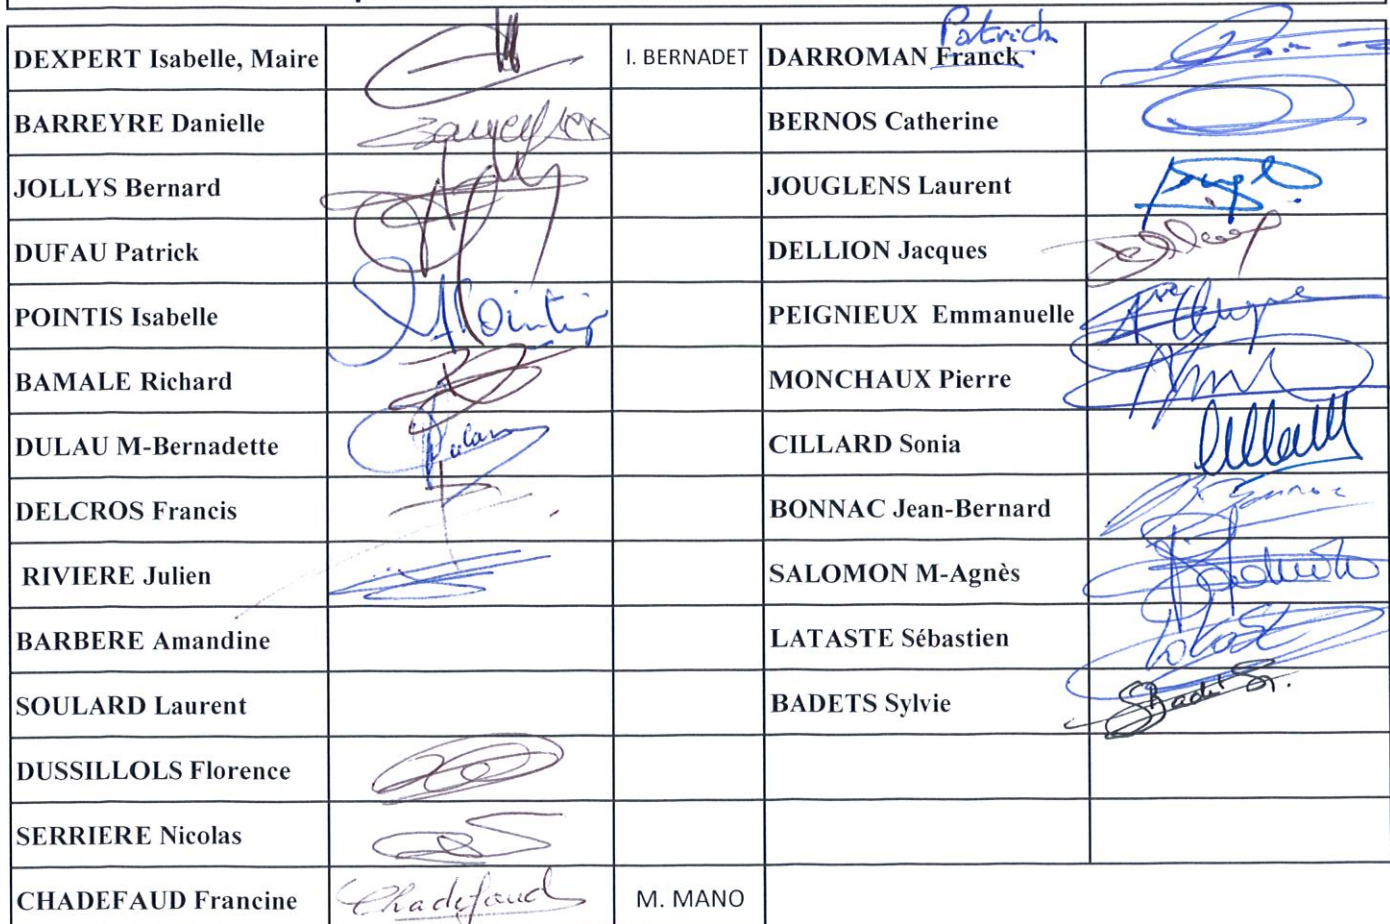 DEXPERT Isabelle, Maire I. BERNADET DARROMAN Franck Patrick
BARREYRE Danielle BERNOS Catherine
JOLLYS Bernard JOUGLENS Laurent
DUFAU Patrick DELLION Jacques
POINTIS Isabelle Pointis PEIGNIEUX Emmanuelle
BAMALE Richard MONCHAUX Pierre
DULAU M-Bernadette Dulau CILLARD Sonia
DELCROS Francis BONNAC Jean-Bernard
RIVIERE Julien SALOMON M-Agnès
BARBERE Amandine LATASTE Sébastien
SOULARD Laurent BADETS Sylvie
DUSSILLOLS Florence
SERRIERE Nicolas
CHADEFAUD Francine Chadefaud M. MANO